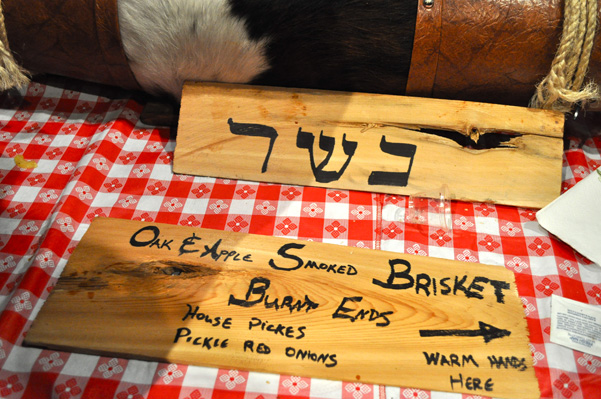 כשר
OAK & APPLE SMOKED BRISKET
BURNT ENDS
HOUSE PICKES
PICKLE RED ONIONS
WARM HANDS
HERE